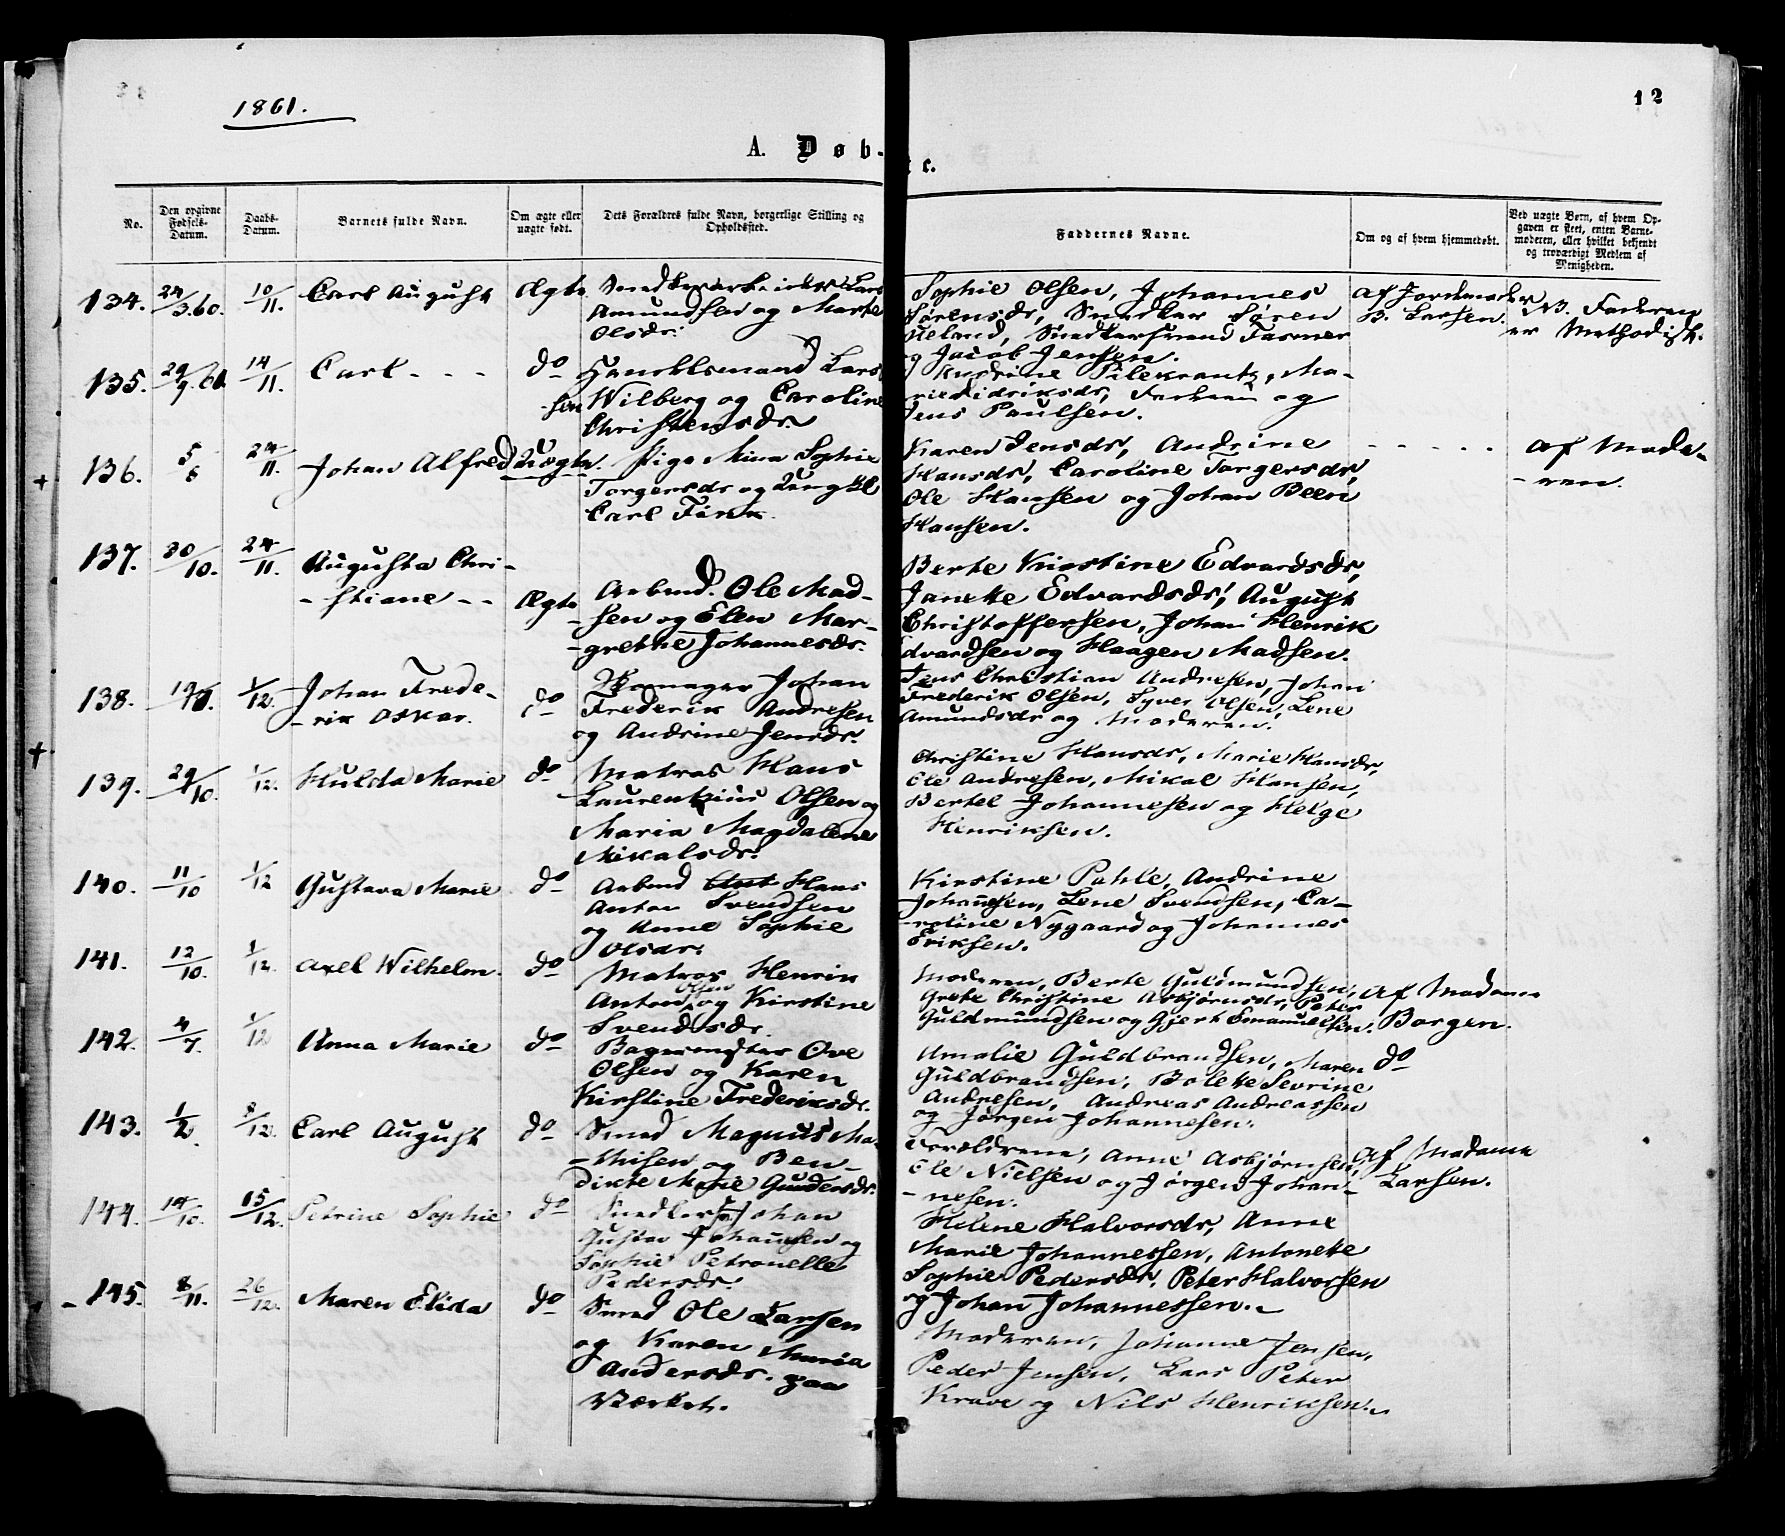 1861.
12
A. Døb-
te.
No.
Den opgivne Fødsels-Datum.
Daabs-Datum.
Barnets fulde Navn.
Om ægte eller uægte født.
Dets Forældres fulde Navn, borgerlige Stilling og Opholdssted.
Faddernes Navne.
Om og af hvem hjemmedøbt.
Ved uægte Børn, af hvem Opgaven er skeet, enten Barnemoderen, eller hvilket bekjendt og troværdigt Medlem af Menigheden.
134. 24/3 60. 10/11. Carl August Ægte
Amundsen og Marte
Olsdr:
Sophie Olsen, Johannes
Sørensdr, Snedker Søren
og Jacob Jensen.
Af Jordmoder
B. Larsen.
NB. Faderen
er Methodist.
135. 29/9 61 14/11. Carl - - - do
Handelsmand Lars
Wilberg og Caroline
Christensdr.
Pilekrantz, Ma-
rie Didriksdr, Faderen og
Jens Paulsen.
136. 5/8 24/11. Johan Alfred Uægte.
Pige Mina Sophie
Torgersdr og Ungkl
Carl Fink.
Karen Jensdr, Andrine
Hansdr, Caroline Torgersdr,
Ole Hansen og Johan Been
Hansen.
- - - - -
af Mode-
- ren.
137. 30/10. 24/11. Augusta Chri-
- stiane - - Ægte
Arbmd. Ole Mad-
- sen og Elen Mar-
- grethe Johannesdr.
Berte Kirstine Edvardsdr,
Janette Edvardsdr, August
Christoffersen, Johan Henrik
Edvardsen og Haagen Madsen.
138. 1/12. Johan Frede-
- rik Oskar. do
Skomager Johan
Frederik Andresen
og Andrine Jensdr.
Jens Christian Andresen, Johan
Frederik Olsen, Syver Olsen, Lene
Amundsdr og Moderen.
139. 29/10. 1/12. Hulda Marie do
Matros Hans
Laurentzius Olsen og
Maria Magdalene
Mikalsdr.
Christine Hansdr, Marie Hansdr,
Ole Andresen, Mikal Hansen,
Bertel Johannesen og Helge
Henriksen.
140. 11/10 1/12 Gustava Marie do
Arbmd Hans
Anton Svendsen
og Anne Sophie
Olsdr.
Kirstine Pahle, Andrine
Johannesen, Lene Svendsen, Ca-
- roline Nygaard og Johannes
Eriksen.
141. 12/10. 1/12. Axel Wilhelm. do
Matros Henrik
Anton Olsen og Kirstine
Svendsdr.
Moderen, Berte Guldmundsen,
Grete Christine Asbjørnsdr, Peter
Guldmundsen og Gjert Emanuelsen.
Af Madame
Borgen.
142. 4/7. 1/12 Anna Marie do
Bagermester Ove
Olsen og Karen
Kirstine Frederiksdr.
Amalie Guldbrandsen, Maren
Guldbrandsen, Bolette Sevrine
Andresen, Andreas Andreassen
og Jørgen Johannesen.
do
143. 1/2. 8/12. Carl August do
Smed Magnus Ma-
- thisen og Ben-
dikte Marie Gundersdr.
Forældrene, Anne Asbjørnsen,
Ole Nielsen og Jørgen Johan-
- nesen.
Af Madame
Larsen.
144. 14/10. 15/12. Petrine Sophie do
Johan
Gustav Johansen og
Sophie Petronelle
Pedersdr.
Helene Halvorsdr, Anne
Marie Johannessen, Antonette
Sophie Pedersdr, Peter Halvorsen
og Johan Johannessen.
145. 8/11. 26/12. Maren Elida do
Smed Ole Larsen
og Karen Maria
Andersdr. paa
Værket.
Moderen, Johanne Jensen,
Peder Jensen, Lars Peter
Krave og Nils Henriksen.